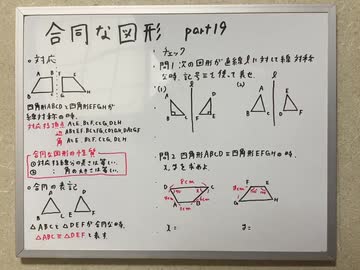 合同な図形 part19
○対応
A E
B H
C G
四角形ABCDと四角形EFGHが
線対称の時.
対応する頂点 AとE. BとF. CとG. DとH
辺 ABとEF. BCとFG. CDとGH. DAとHE
角 AとE. BとF. CとG. DとH
合同な図形の性質
① 対応する線分の長さは等しい.
② 〃 角の大きさは等しい.
○合同の表記
A D
B C E F
△ABCと△DEFが合同な時.
△ABC≡△DEFと表す
チェック
問1 次の図形が直線lに対して線対称
な時、記号≡を使って表せ.
(1) (2)
A l D
B C F E
A l D
B C E F
問2 四角形ABCD≡四角形EFGHの時.
x, yを求めよ.
D 8cm C
4cm
A 5cm B
E F
H G
x= y=